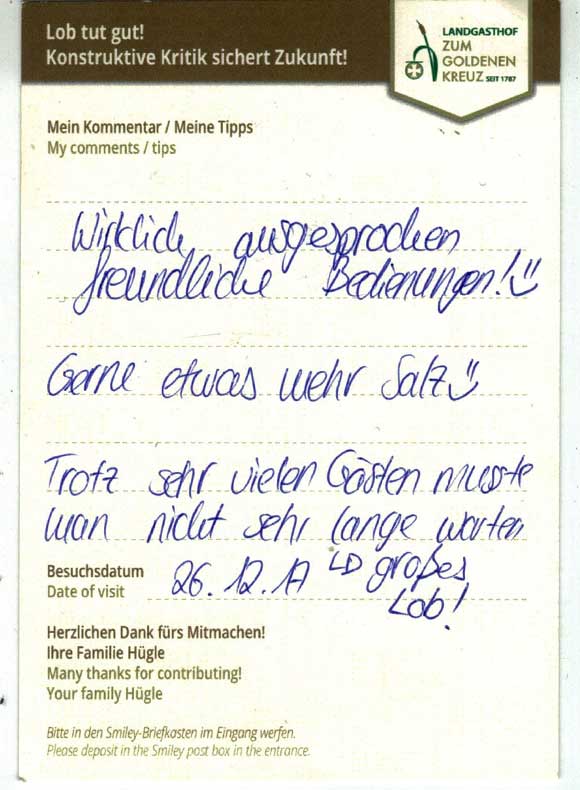 Lob tut gut!
Konstruktive Kritik sichert Zukunft!
LANDGASTHOF
ZUM
GOLDENEN
KREUZ SEIT 1787
Mein Kommentar / Meine Tipps
My comments / tips
Wirklich ausgesprochen
freundliche Bedienungen! :)
Gerne etwas mehr Salz :)
Trotz sehr vielen Gästen musste
man nicht sehr lange warten
Besuchsdatum
Date of visit
26.12.17 → großes
Lob!
Herzlichen Dank fürs Mitmachen!
Ihre Familie Hügle
Many thanks for contributing!
Your family Hügle
Bitte in den Smiley-Briefkasten im Eingang werfen.
Please deposit in the Smiley post box in the entrance.